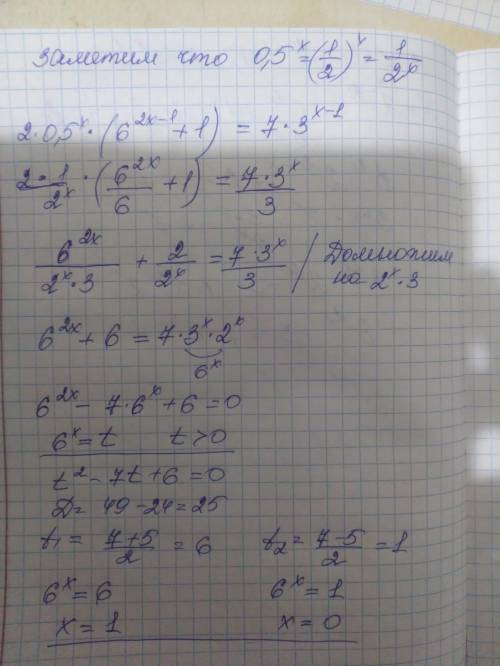 Заметим что 0,5^x = (1/2)^x = 1/2^x
2·0,5^x · (6^{2x-1} + 1) = 7·3^{x-1}
2·1/2^x · (6^{2x}/6 + 1) = 7·3^x/3
6^{2x}/2^x·3 + 2/2^x = 7·3^x/3 / Домножим на 2^x·3
6^{2x} + 6 = 7·3^x·2^x
6^x
6^{2x} - 7·6^x + 6 = 0
6^x = t t > 0
t^2 - 7t + 6 = 0
D = 49 - 24 = 25
t₁ = 7+5/2 = 6 t₂ = 7-5/2 = 1
6^x = 6 6^x = 1
x = 1 x = 0